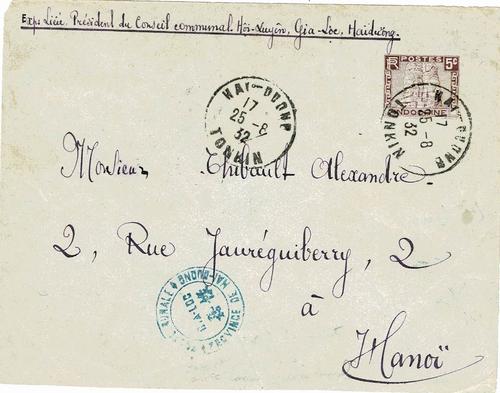 Exp: Liêu, Président du Conseil communal. Hôi-Xuyên, Gia-Lôc, Haiduong.
RF POSTES 5c
INDOCHINE
HAI-DUONG
17
25-8
32
TONKIN
HAI-DUONG
17
25-8
32
TONKIN
Monsieur Thibault Alexandre
2, Rue Jauréguiberry, 2
à
Hanoï
PROVINCE DE HAI-DUONG
GIA-LOC